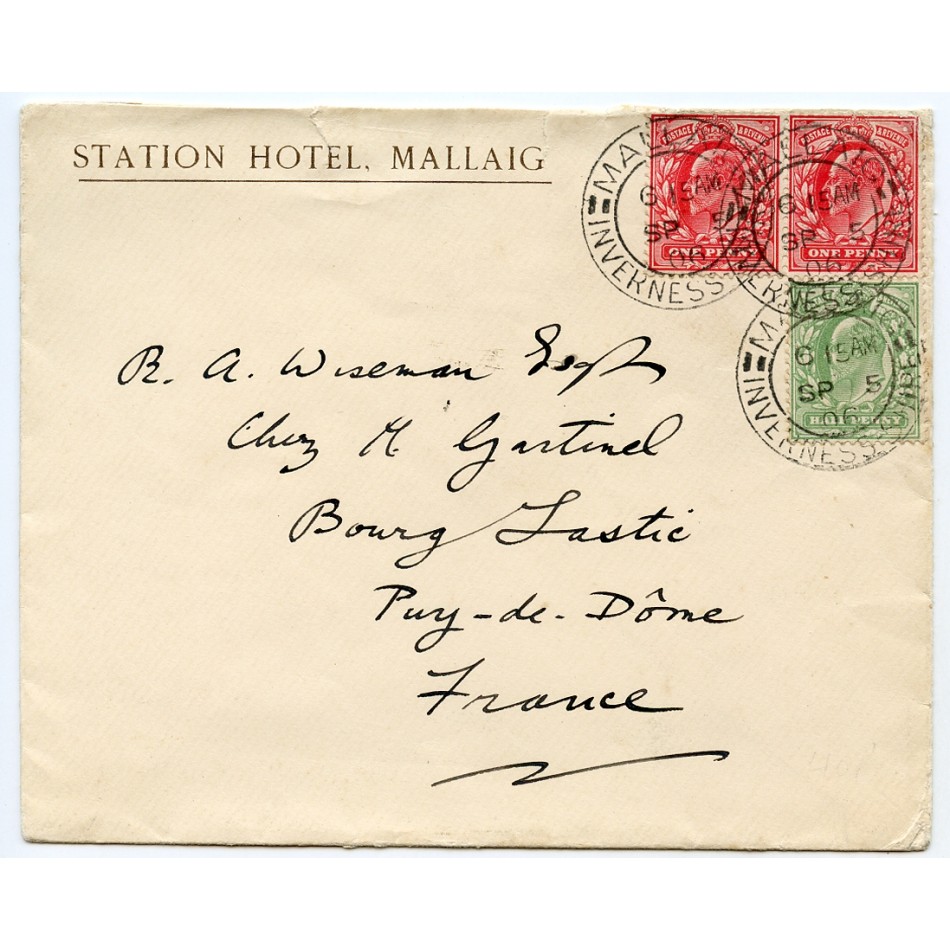 STATION HOTEL, MALLAIG
POSTAGE & REVENUE
ONE PENNY
POSTAGE & REVENUE
ONE PENNY
HALF PENNY
MALLAIG
6 15AM
SP 5
06
INVERNESS-SHIRE
MALLAIG
6 15AM
SP 5
06
INVERNESS-SHIRE
MALLAIG
6 15AM
SP 5
06
INVERNESS-SHIRE
R. A. Wiseman Esqr
Chez M Gartinel
Bourg Lastic
Puy-de-Dôme
France